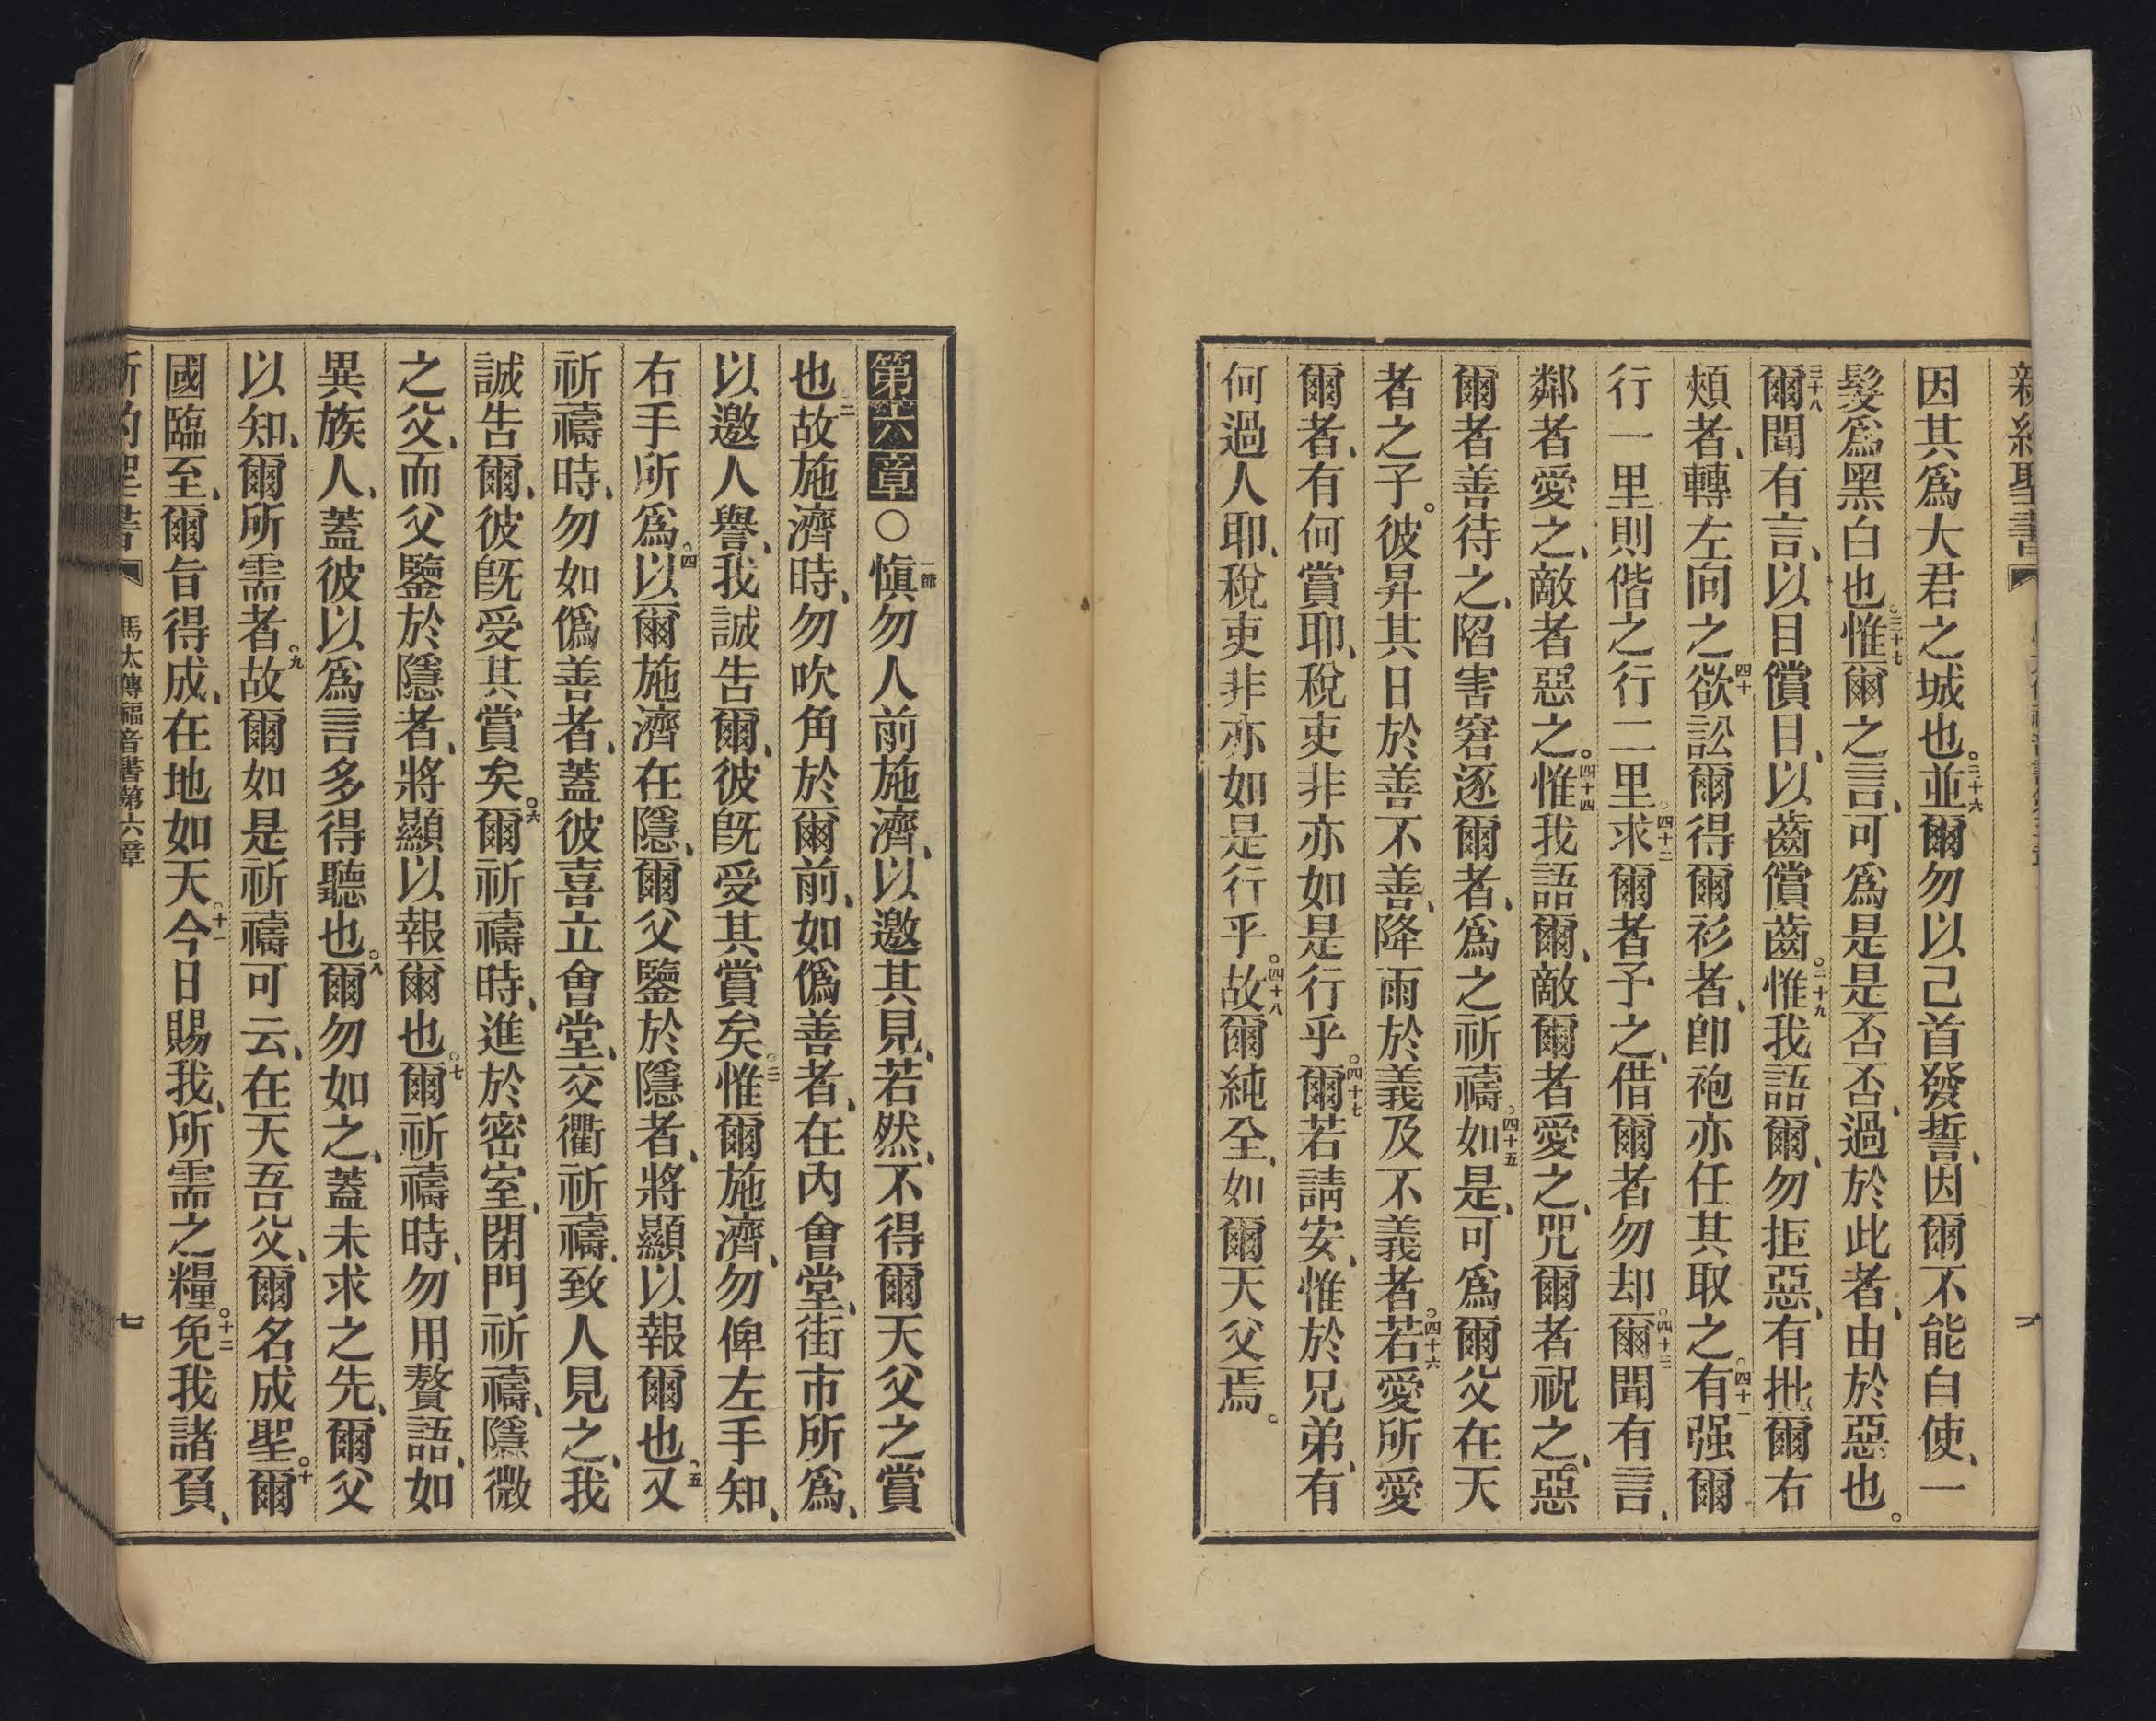 新約聖書
因其爲大君之城也。三十六並爾勿以己首發誓、因爾不能白使、一
髮爲黑白也。三十七惟爾之言、可爲是是否否、過於此者、由於惡也。
三十八爾聞有言、以目償目、以齒償齒。三十九惟我語爾、勿拒惡、有批爾右
頰者、轉左向之、四十欲訟爾得爾衫者、卽袍亦任其取之。四十一有强爾
行一里則偕之行二里。四十二求爾者予之、借爾者勿却。四十三爾聞有言、
鄰者愛之、敵者惡之。四十四惟我語爾、敵爾者愛之、咒爾者祝之、惡
爾者善待之、陷害窘逐爾者、爲之祈禱。四十五如是、可爲爾父在天
者之子。彼昇其日於善不善、降雨於義及不義者。四十六若愛所愛
爾者、有何賞耶、稅吏非亦如是行乎。四十七爾若請安、惟於兄弟、有
何過人耶、稅吏非亦如是行乎。四十八故爾純全、如爾天父焉。
第六章○一節愼勿人前施濟、以邀其見、若然、不得爾天父之賞
也二故施濟時、勿吹角於爾前、如僞善者、在內會堂、街市所爲、
以邀人譽、我誠告爾、彼旣受其賞矣。三惟爾施濟、勿俾左手知、
右手所爲。四以爾施濟在隱、爾父鑒於隱者、將顯以報爾也、五又
祈禱時、勿如僞善者、蓋彼喜立會堂、交衢祈禱、致人見之、我
誠告爾、彼旣受其賞矣。六爾祈禱時、進於密室、閉門祈禱、隱微
之父、而父鑒於隱者、將顯以報爾也。七爾祈禱時、勿用贅語、如
異族人、蓋彼以爲言多得聽也。八爾勿如之、蓋未求之先、爾父
以知、爾所需者。九故爾如是祈禱可云、在天吾父、爾名成聖。十爾
國臨至、爾旨得成、在地如天。十一今日賜我、所需之糧。十二免我諸負、
新約聖書 馬太傳福音書第六章 七